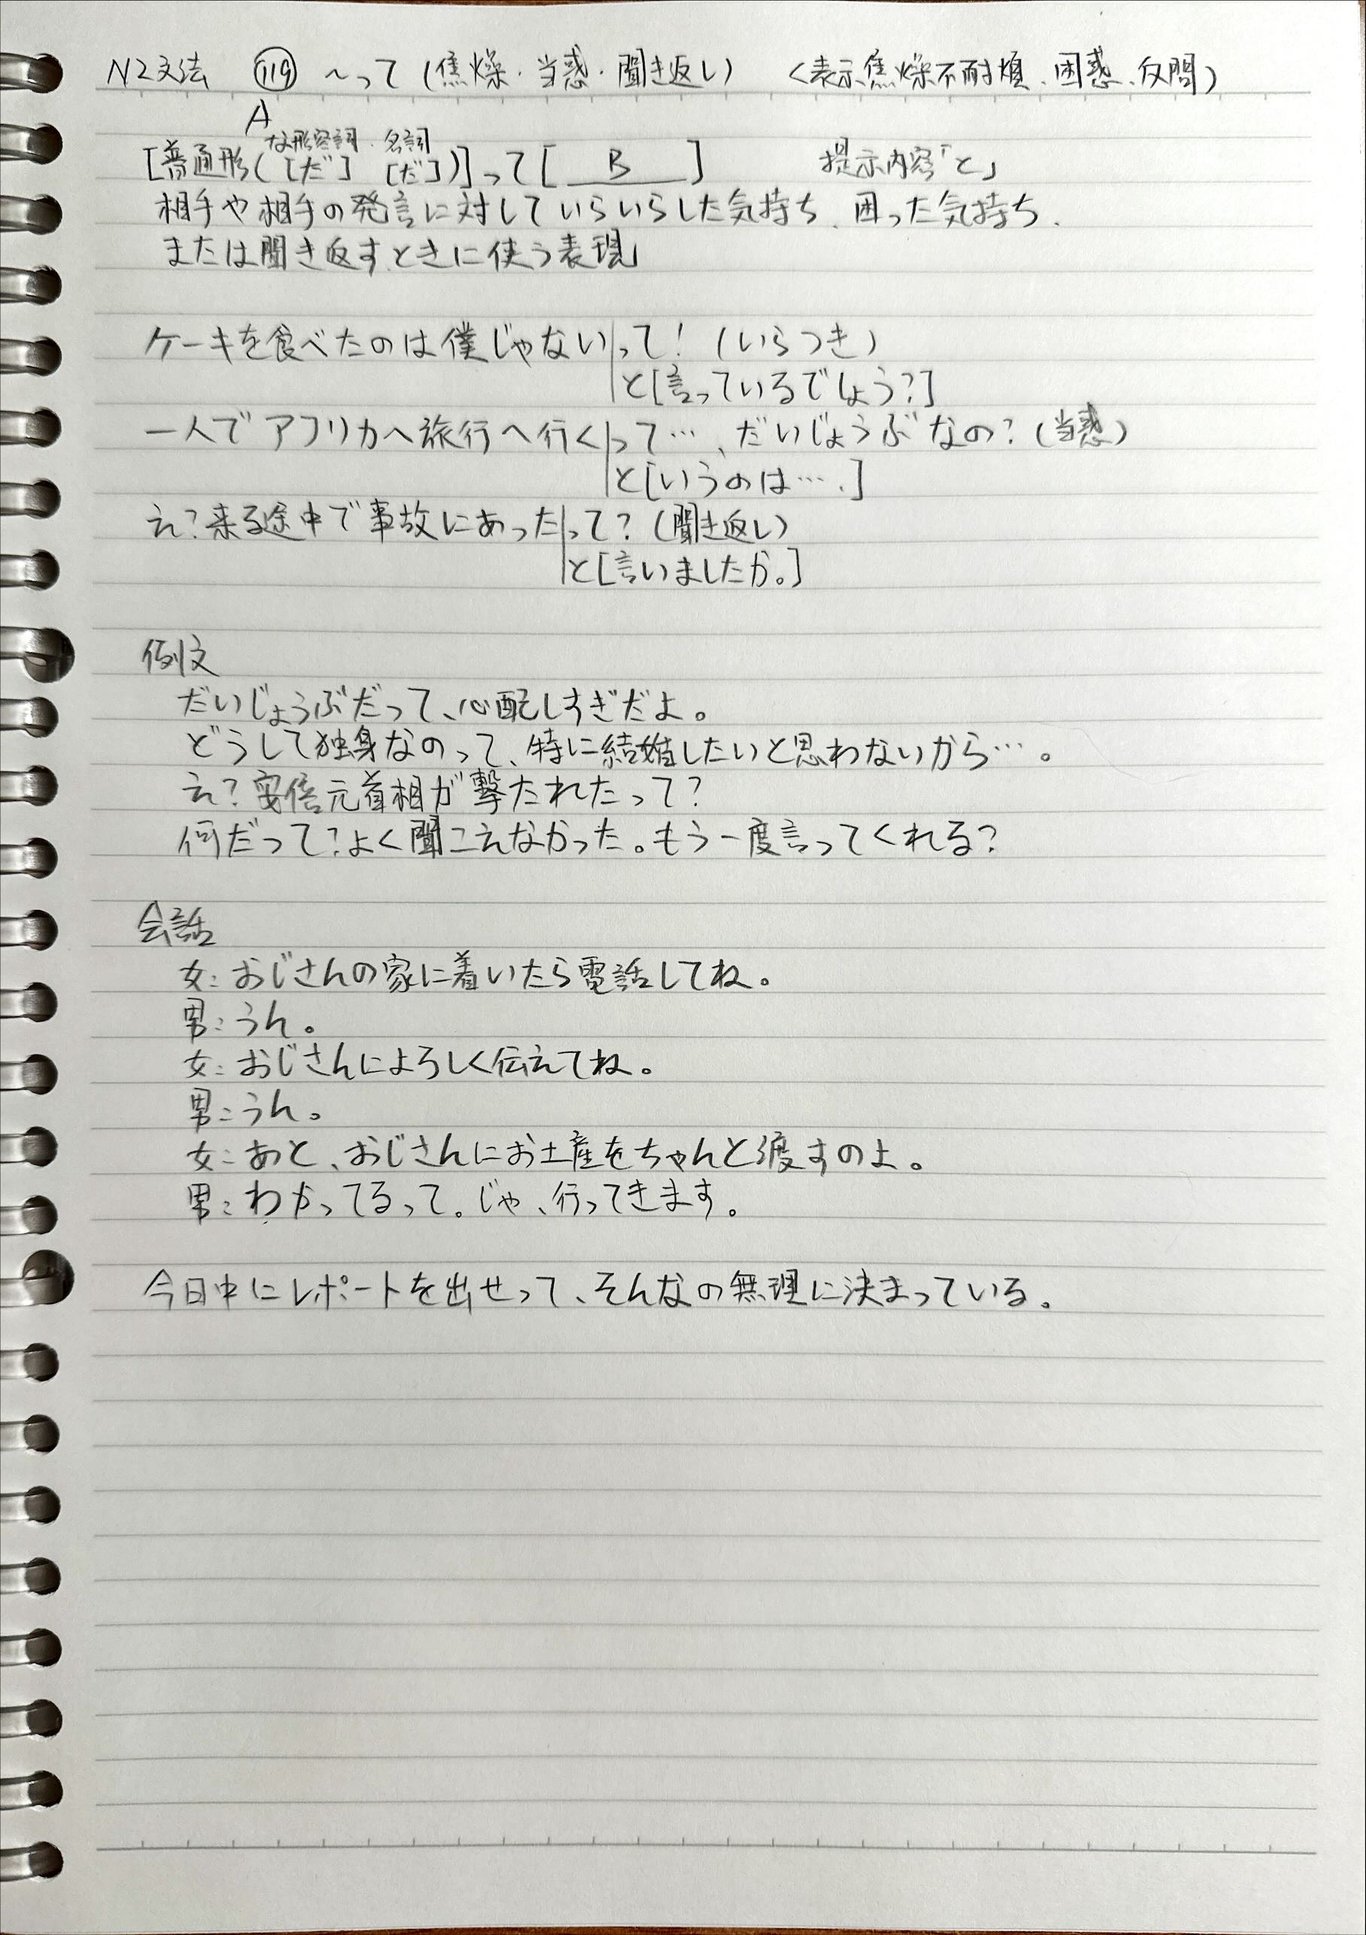 N2文法 119 ～って(焦燥・当惑・聞き返し) <表示焦燥不耐煩、困惑、反問>
A
な形容詞・名詞
[普通形([だ] [だ])]って[ B ] 提示内容「と」
相手や相手の発言に対していらいらした気持ち、困った気持ち、
または聞き返すときに使う表現」
ケーキを食べたのは僕じゃない|って!(いらつき)
|と[言っているでしょう?]
一人でアフリカへ旅行へ行く|って…、だいじょうぶなの?(当惑)
|と[いうのは….]
え?来る途中で事故にあった|って?(聞き返し)
|と[言いましたか。]
例文
だいじょうぶだって、心配しすぎだよ。
どうして独身なのって、特に結婚したいと思わないから…。
え?安倍元首相が撃たれたって?
何だって?よく聞こえなかった。もう一度言ってくれる?
会話
女:おじさんの家に着いたら電話してね。
男:うん。
女:おじさんによろしく伝えてね。
男:うん。
女:あと、おじさんにお土産をちゃんと渡すのよ。
男:わかってるって。じゃ、行ってきます。
今日中にレポートを出せって、そんなの無理に決まっている。